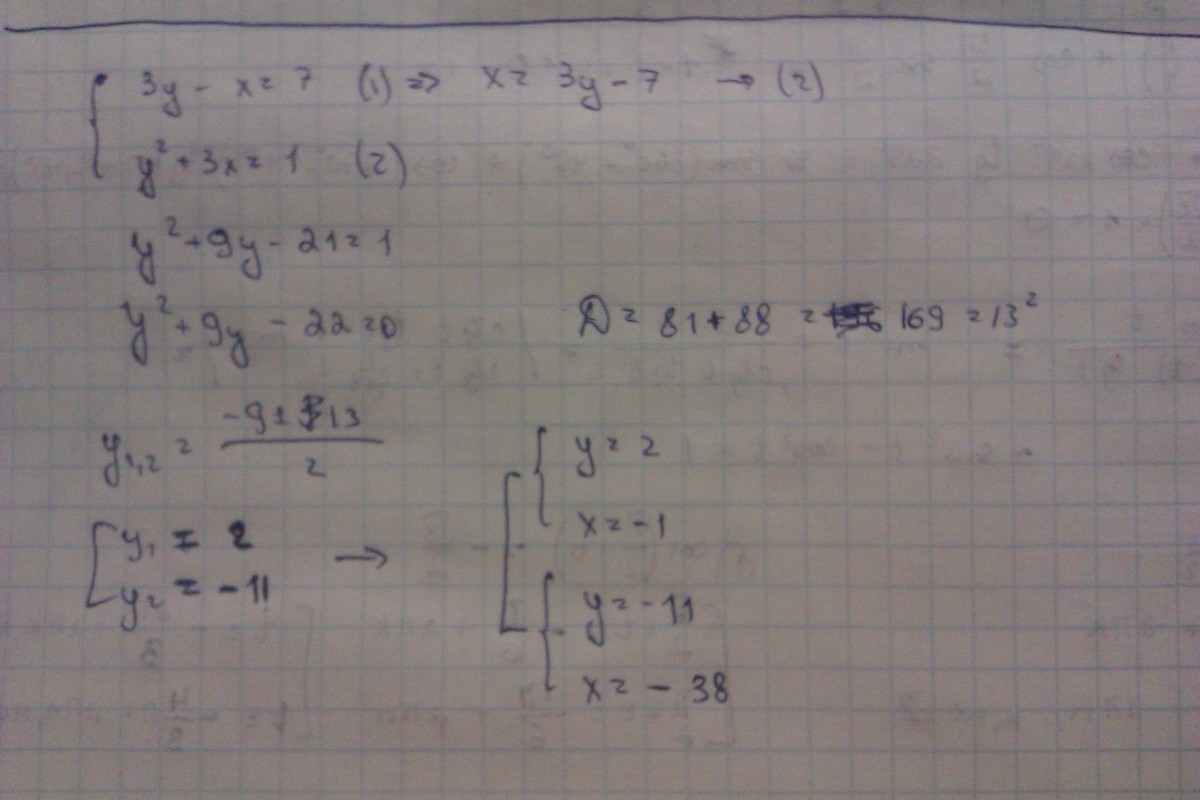 3y - x = 7 (1) => x = 3y - 7 → (2)
y² + 3x = 1 (2)
y² + 9y - 21 = 1
y² + 9y - 22 = 0 D = 81 + 88 = 169 = 13²
y₁,₂ = (-9 ± 13)/2
y₁ = 2 → y = 2
x = -1
y₂ = -11
y = -11
x = - 38